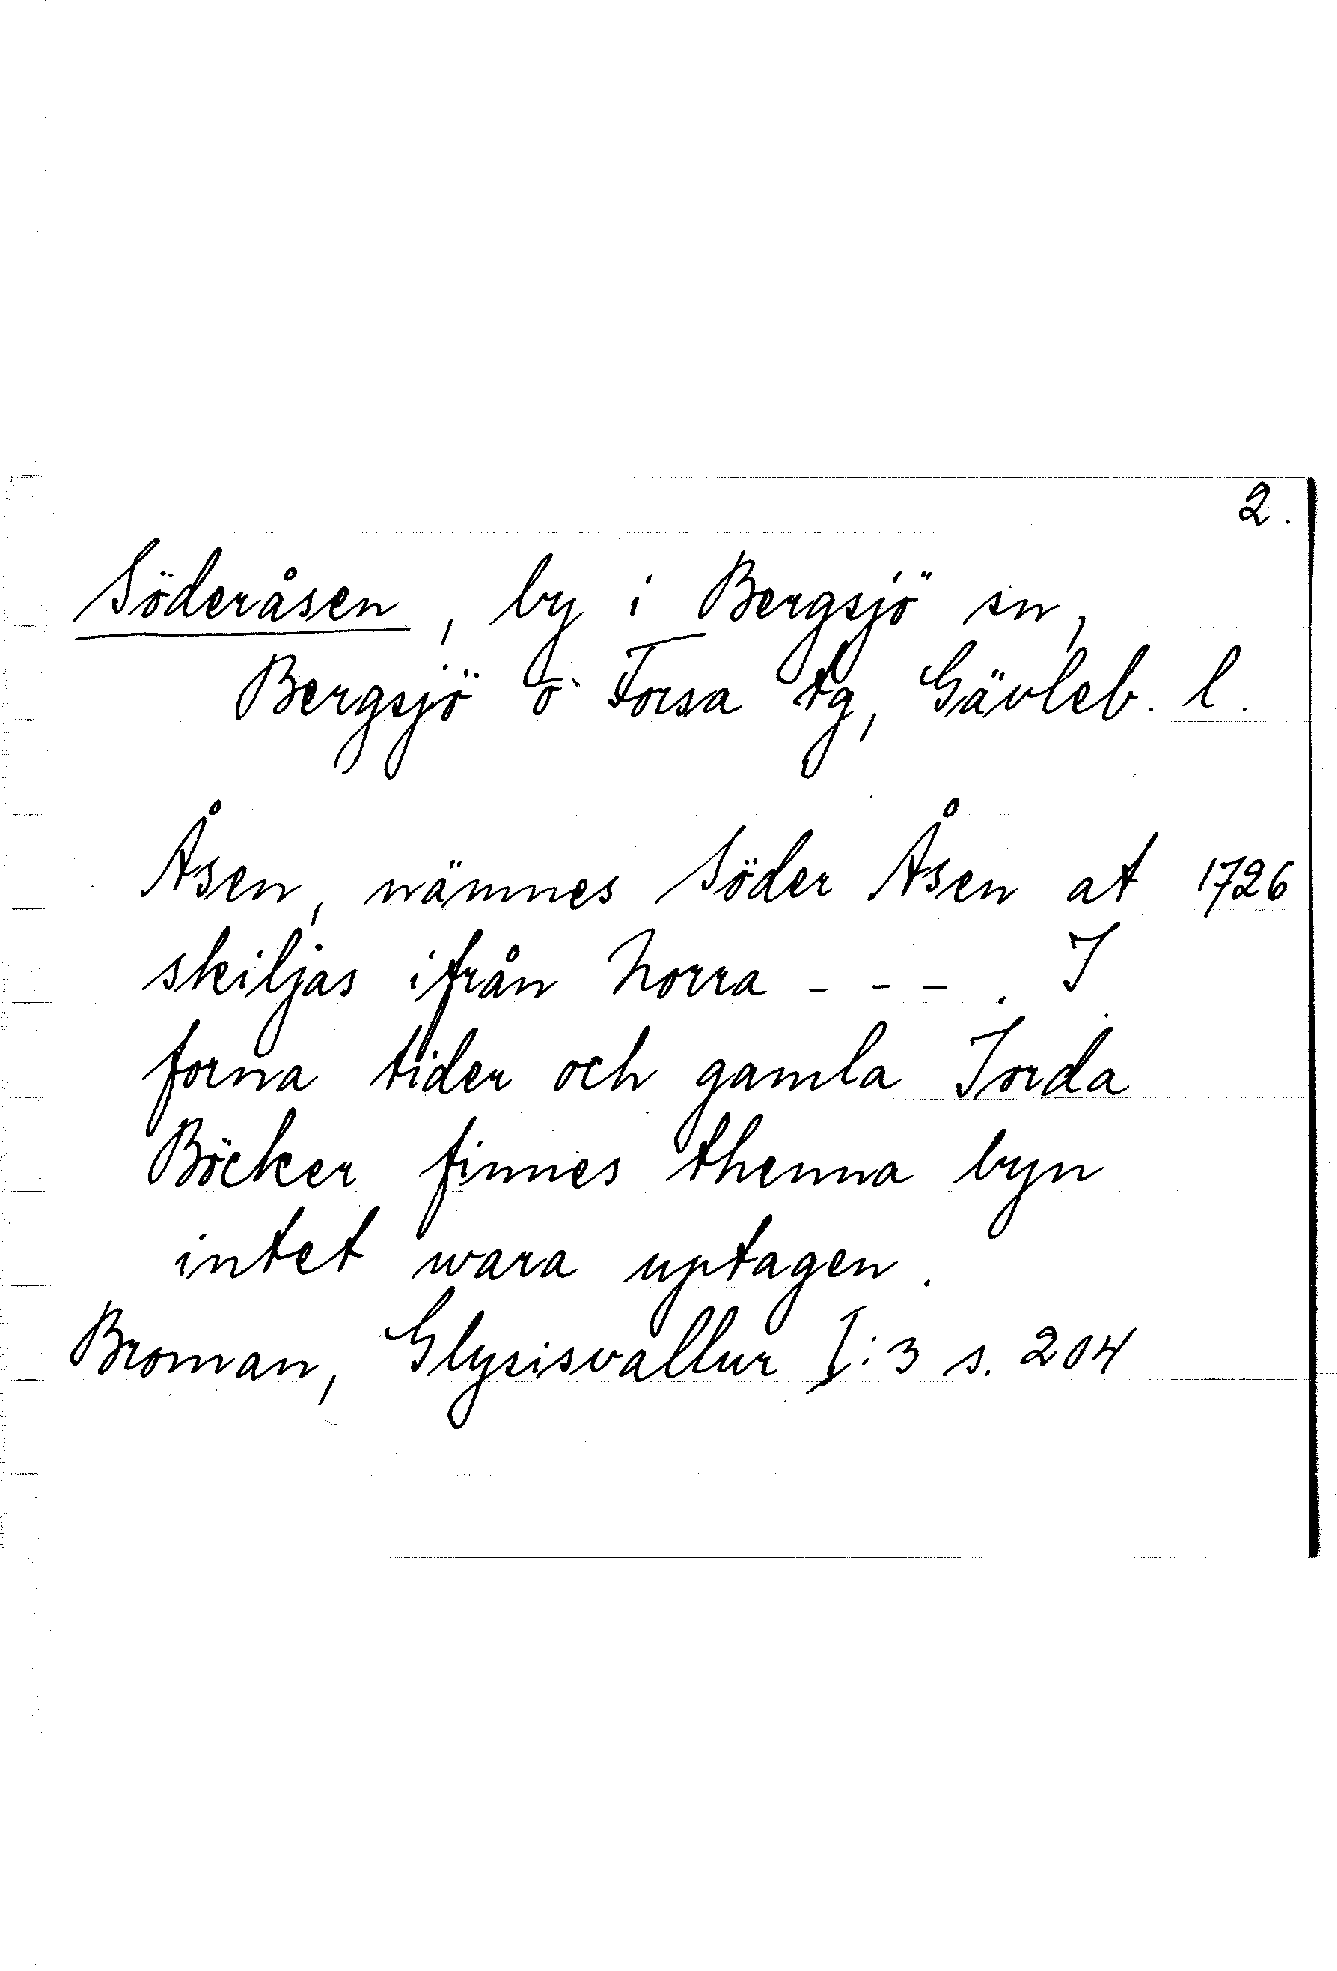 2.
Söderåsen, by i Bergsjö sn,
Bergsjö o Forsa tg, Gävleb. l.
Åsen, nämnes Söder Åsen at 1726
skiljas ifrån Norra - - - . I
forna tider och gamla Jorda
Böcker finnes thenna byn
intet wara uptagen.
Broman, Glysisvallur I:3 s. 204